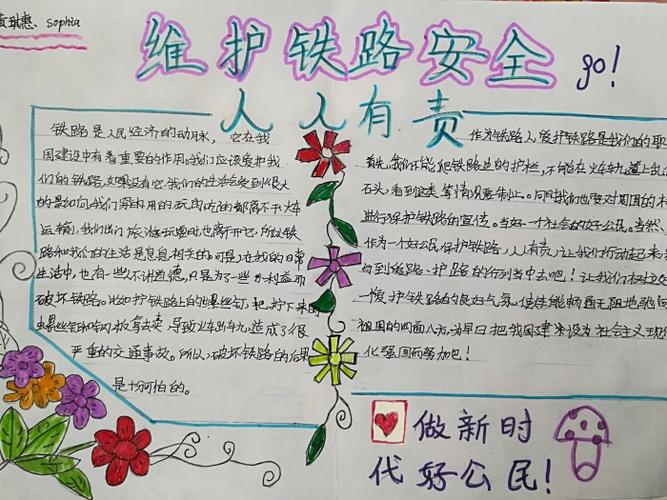 琪惠、sophia
维护铁路安全 go!
人人有责
铁路是人民经济的动脉，它在我
国建设中有着重要的作用。我们应该爱护我
们的铁路，如果没有它，我们的生活会受到很大
的影响。我们穿的用的玩的吃的都离不开火车
运输，我们出门旅游玩耍时也离开它，所以铁
路和我们的生活是息息相关的。可是，在我们的日常
生活中，也有一些不讲道德，只是为了一些小利益而
破坏铁路。比如护铁路上的螺丝钉，把拧下来
螺丝钉 拿去卖，导致火车出轨，造成了很
严重的交通事故。所以，破坏铁路的后果
是十分可怕的。
作为铁路人爱护铁路是我们的职
责，我们不能爬铁路边的护栏，不能在火车轨道上乱
石头，看到这类事情以要制止。同时我们也要对周围的
进行保护铁路的宣传。当好一个社会的好公民。当然、
作为一个好公民保护铁路，人人有责，让我们行动起来
到给路、护路的行列当中去吧！让我们树立
一爱护铁路的良好气氛，使铁能畅通无阻地驰向
祖国的四面八方，为早日把我国建设为社会主义现
化强国而努加巴！
做新时
代好公民！